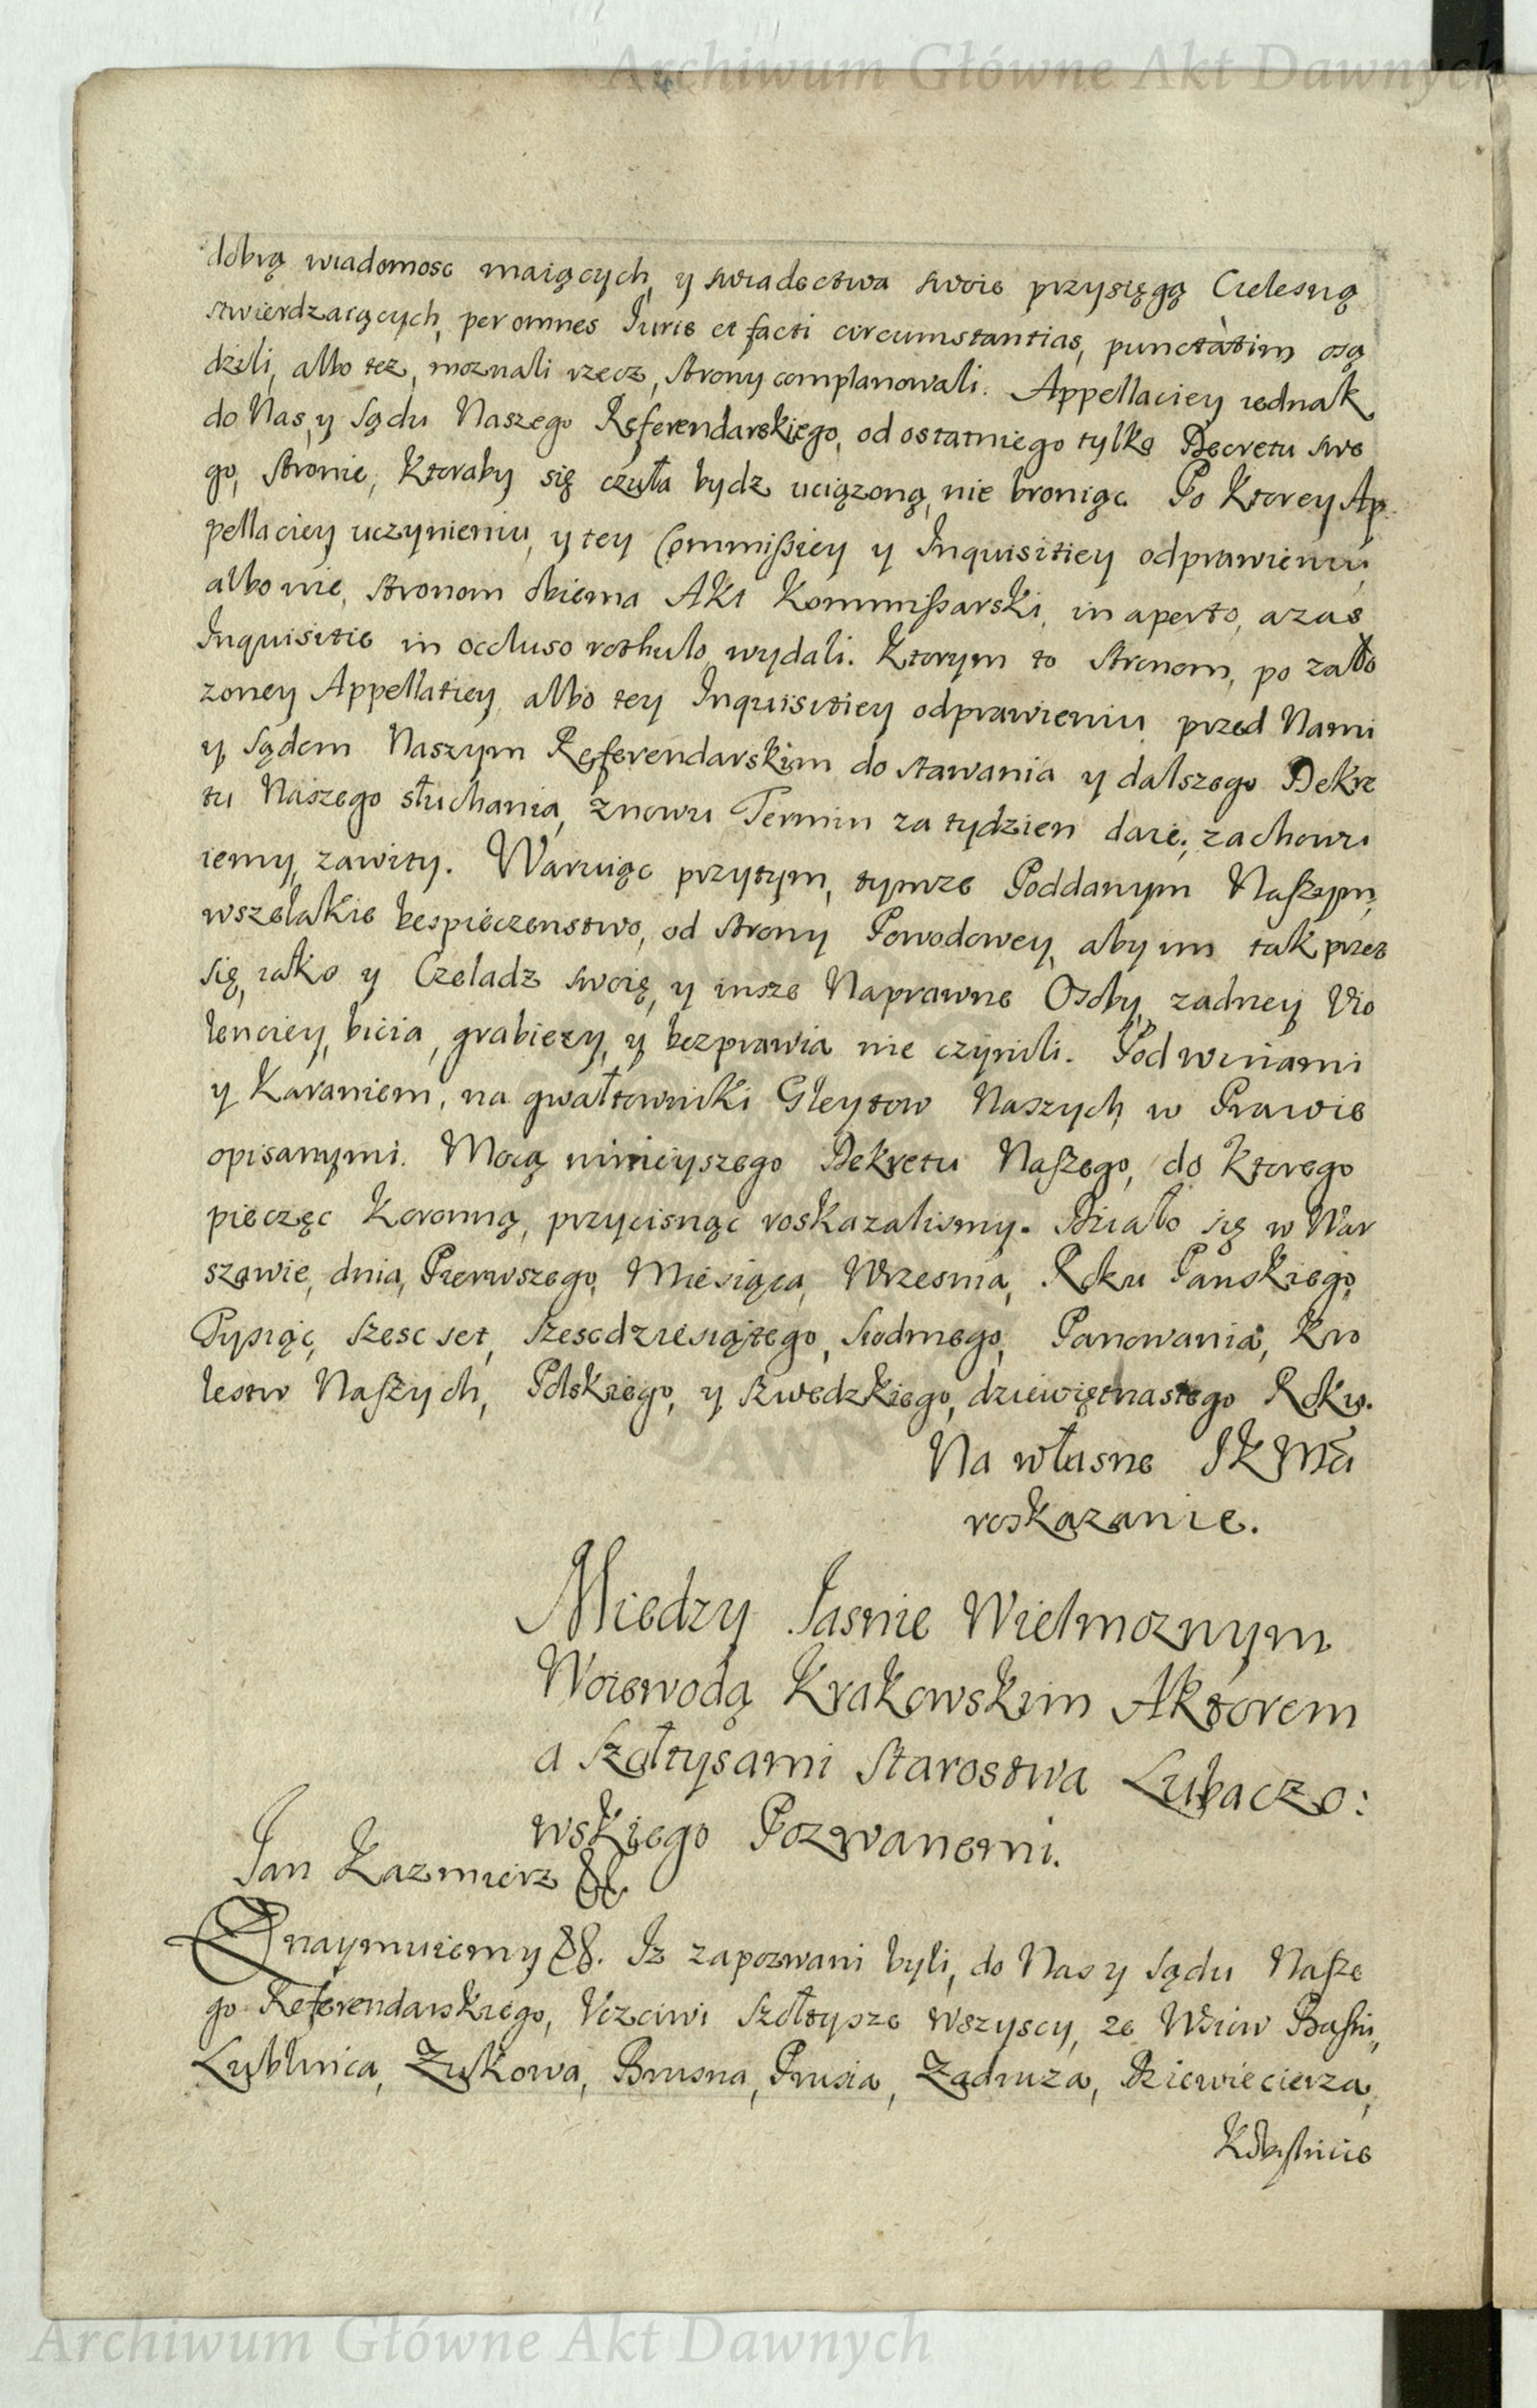 Archiwum Główne Akt Dawnych
dobrą wiadomosc maiących, y swiadectwa swoie przysięgą Cielesną
stwierdzaiących, per omnes Iuris et facti circumstantias, punctatim osą
dzili, albo tez, moznali rzecz, strony complanowali. Appellaciey iednak
do Nas, y Sądu Naszego Referendarskiego, od ostatniego tylko Decretu swe
go, stronie, Ktoraby się czuła bydz uciązoną, nie broniąc. Po Ktorey Ap
pellaciey uczynieniu, y tey Commissiey y Inquisitiey odprawieniu,
albo nie, stronom obiema Akt Kommissarski, in aperto, a zas
Inquisitie in occluso rothulo wydali. Ktorym to stronom, po zało
zoney Appellatiey, albo tey Inquisitiey odprawieniu przed Nami
y Sądem Naszym Referendarskim do stawania y dalszego Dekre
tu Naszego słuchania, znowu Termin za tydzien daie, zachowu
iemy, zawity. Waruiąc przytym, tymze Poddanym Naszym,
wszelakie bespieczenstwo, od strony Powodowey, aby im tak przez
się, iako y Czeladz swoię, y insze Naprawne Osoby, zadney Vio
lenciey, bicia, grabiezy, y bezprawia nie czynili. Pod winami
y Karaniem, na gwałtowniki Gleytow Naszych, w Prawie
opisanymi. Mocą ninieyszego Dekretu Naszego, do Ktorego
pieczęc Koronną, przycisnąc roskazalismy. Działo się w War
szawie, dnia, Pierwszego, Miesiąca, Wrzesnia, Roku Panskiego,
Tysiąc, szesc set, szescdziesiątego, siodmego, Panowania, Kro
lestw Naszych, Polskiego, y Szwedzkiego, dziewiętnastego Roku.
Na własne JKMci
roskazanie.
Miedzy Iasnie Wielmoznym
Woiewodą Krakowskim Aktorem
a Szołtysami Starostwa Lubaczo:
wskiego Pozwanemi.
Jan Kazimierz &c.
Znaymuiemy &c. Iz zapozwani byli, do Nas y Sądu Nasze
go Referendarskiego, Vczciwi Szołtysze wszyscy, ze Wsiow Basni,
Lublinca, Zukowa, Brusna, Prusia, Zadruza, Dziewiecierza,
DAWN
Archiwum Główne Akt Dawnych